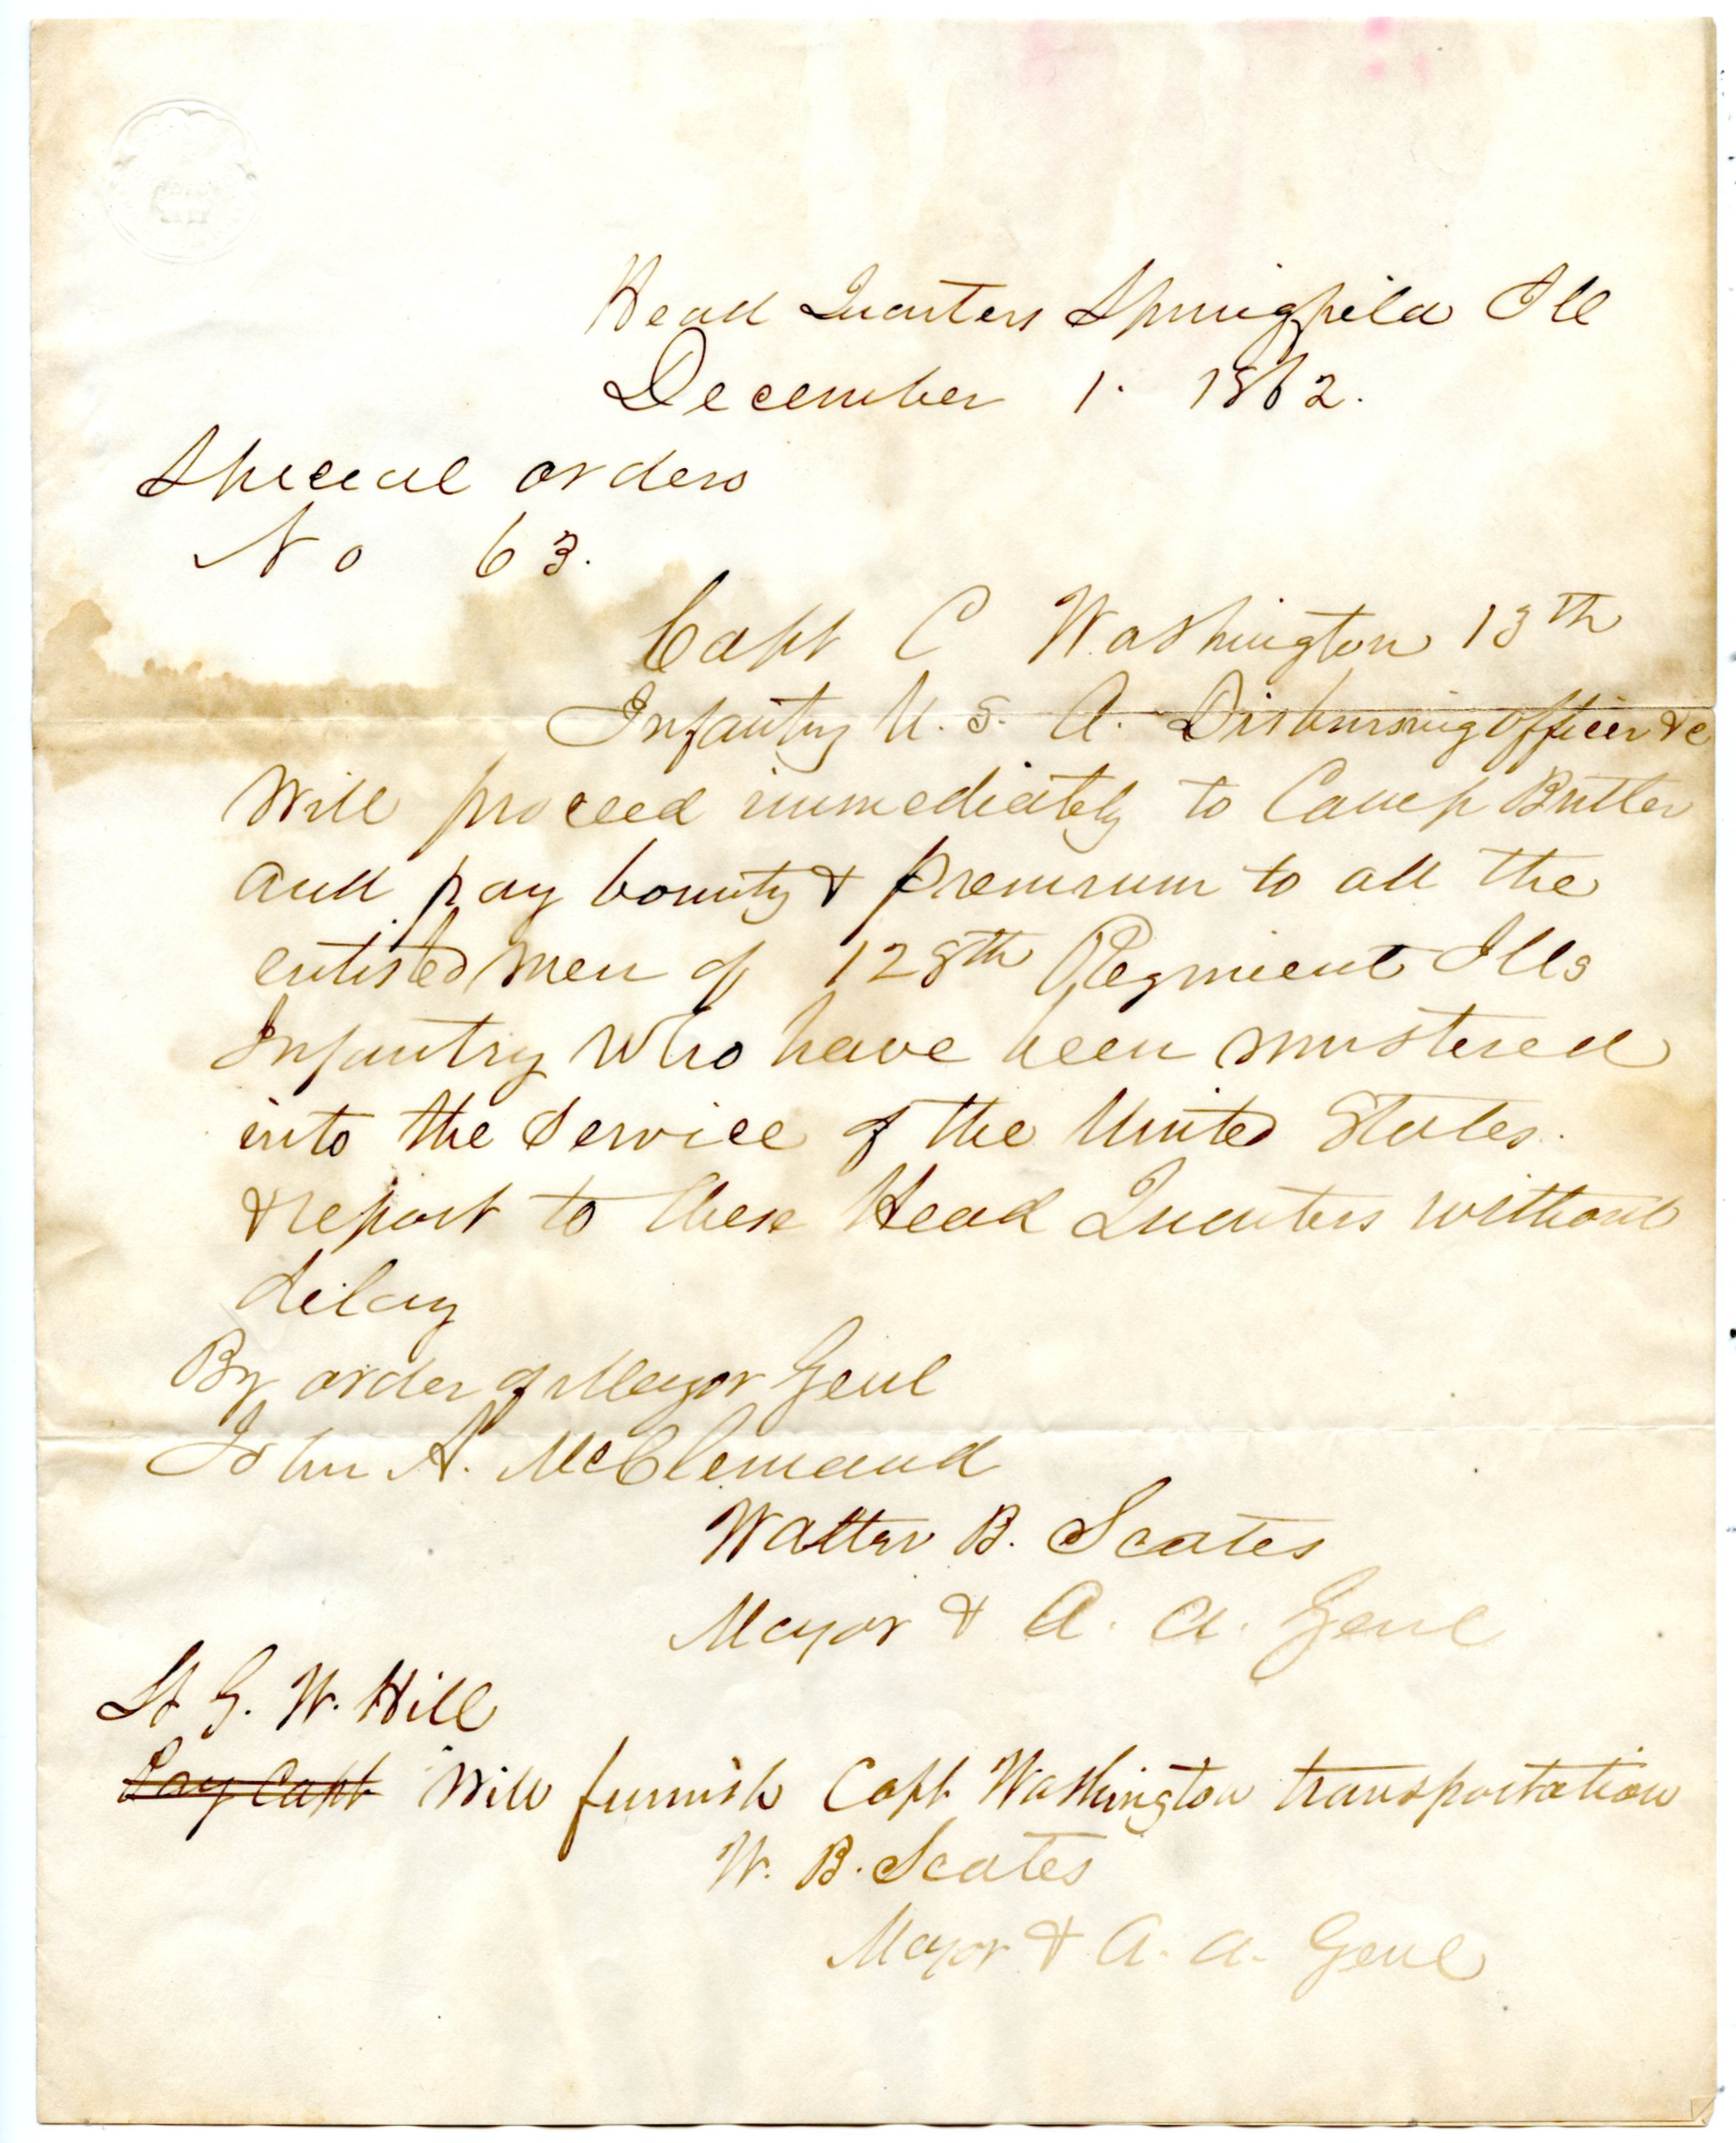 Head Quarters Springfield Ill
December 1. 1862.
Special orders
No 63.
Capt C Washington 13th
Infantry U. S. A. Disbursing officer &c
Will proceed immediately to Camp Butler
and pay bounty & premium to all the
enlisted men of 128th Regiment Ills
Infantry who have been mustered
into the service of the United States.
& report to these Head Quarters without
delay
By order of Major Genl
John A. McClernand
Walter B. Scates
Major & A. A. Genl
Lt G. W. Hill
Will furnish Capt Washington transportation
W. B. Scates
Major & A. A. Genl